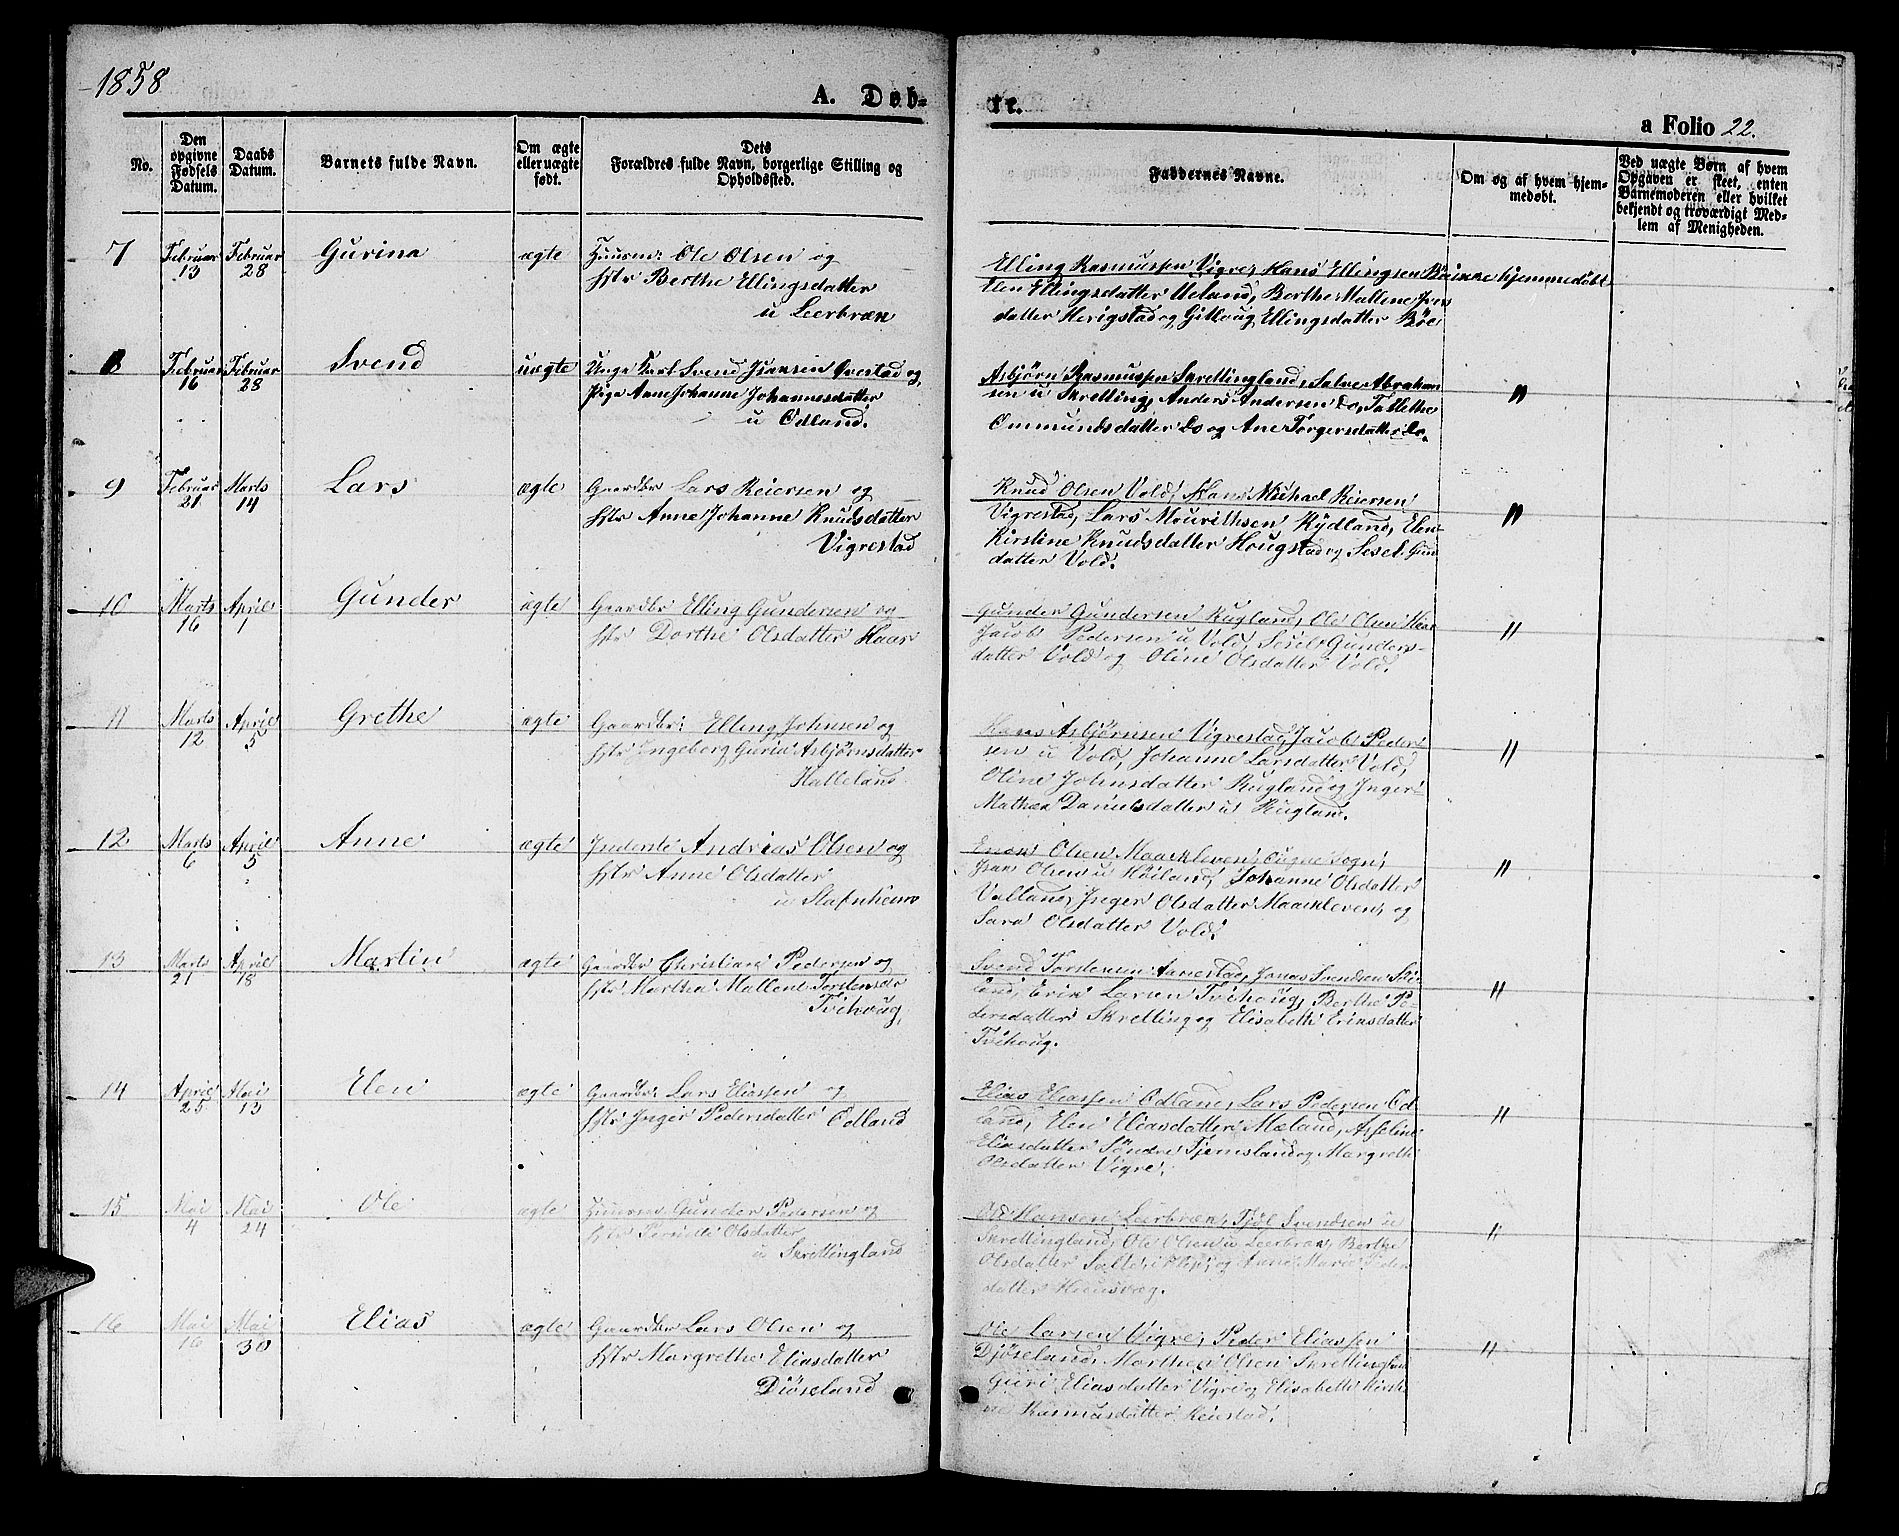 1858
A. Døb-
te.
a Folio 22.
No.
Den opgivne Fødsels Datum.
Daabs Datum.
Barnets fulde Navn.
Om ægte eller uægte født.
Dets Forældres fulde Navn, borgerlige Stilling og Opholdssted.
Faddernes Navne.
Om og af hvem hjem-
medøbt.
Ved uægte Børn af hvem
Opgaven er skeet, enten
Barnemoderen eller hvilket
bekjendt og troværdigt Med-
lem af Menigheden.
7 Februar 13 Februar 28 Gurina ægte Huusm: Ole Olsen og
Hstr Berthe Ellingsdatter
u Leerbræn
Elling Rasmussen Vigre, Hans Ellingsen Bö ikke hjemmedöbt
Elen Ellingsdatter Ueland, Berthe Mallene Jens
datter Herigstad og Gitloug Ellingsdatter Böe
8 Februar 16 Februar 28 Svend uægte Unge Karl Svend Isaksen Averstad og
Pige Anne Johanne Johannesdatter
u Odland.
Asbjørn Rasmussen Skrettingland, Salve Abraham
sen u Skretting, Anders Andersen Do, Tallethe
Ommundsdatter Do og Ane Torgersdatter Do. "
9 Februar 21 Marts 14 Lars ægte Gaardbr Lars Reiersen og
Hstr Anne Johanne Knudsdatter
Vigrestad
Knud Olsen Vold, Hans Michael Reiersen
Vigrestad, Lars Mourithsen Rydland, Elen
Kirstine Knudsdatter Hougstad og Sesel Gun
datter Vold. "
10 Marts 16 April 1 Gunder ægte Gaardbr Elling Gundersen og
Hstr Dorthe Olsdatter Haar
Gunder Gundersen Rugland, Ole Olsen Haar
Jacob Pedersen u Vold, Sesel Gunders-
datter Vold og Oline Olsdatter Vold. "
11 Marts 12 April 5 Grethe ægte Gaardbr: Elling Johnsen og
Hstr Engeberg Guria Asbjørnsdatter
Halleland
Hans Asbjørnsen Vigrestad, Jacob Peder
sen u Vold, Johanne Larsdatter Vold,
Oline Johnsdatter Rugland og Inger
Mathea Danielsdatter u Rugland. "
12 Marts 6 April 5 Anne ægte Inderste Andreas Olsen og
Hstr Anne Olsdatter
u Stafnheim
Olsen Maackleven, Ougne Sogn,
Isak Olsen u Höiland, Johanne Olsdatter
Valland, Inger Olsdatter Maackleven, og
Sara Olsdatter Vold. "
13 Marts 21 April 18 Martin ægte Gaardbr Christian Pedersen og
Hstr Martha Mallene Torstensdr
Tvihoug,
Svend Torstensen Aarrestad, Jonas Svendsen
land, Erik Larsen Tvihoug, Berthe Pe-
dersdatter Skretting og Elisabeth Eriksdatter
Tvihoug. "
14 April 25 Mai 13 Elen ægte Gaardbr: Lars Eliassen og
Hstr Inger Pedersdatter Odland
Elias Eliassen Odland, Lars Pedersen Od
land, Elen Eliasdatter Mæland, Asseline
Eliasdatter Söndre Tjemsland og Margrethe
Olsdatter Vigre. "
15 Mai 4 Mai 24 Ole ægte Huusm Gunder Pedersen og
Hstr Pernille Olsdatter
u Skrettingland
Ole Hansen Leerbræn, Tjöl Svendsen u
Skrettingland, Ole Olsen u Leerbræn, Berthe
Olsdatter Salte i Klep, og Anne Marie Peder
datter "
16 Mai 16 Mai 30 Elias ægte Gaardbr Lars Olsen og
Hstr Margrethe Eliasdatter
Diöseland
Ole Larsen Vigre, Peder Eliassen
Djöseland, Marthea Olsen Skrettingland
Guri Eliasdatter Vigre og Elisabeth Kirsti
ne Rasmusdatter Reiestad. "